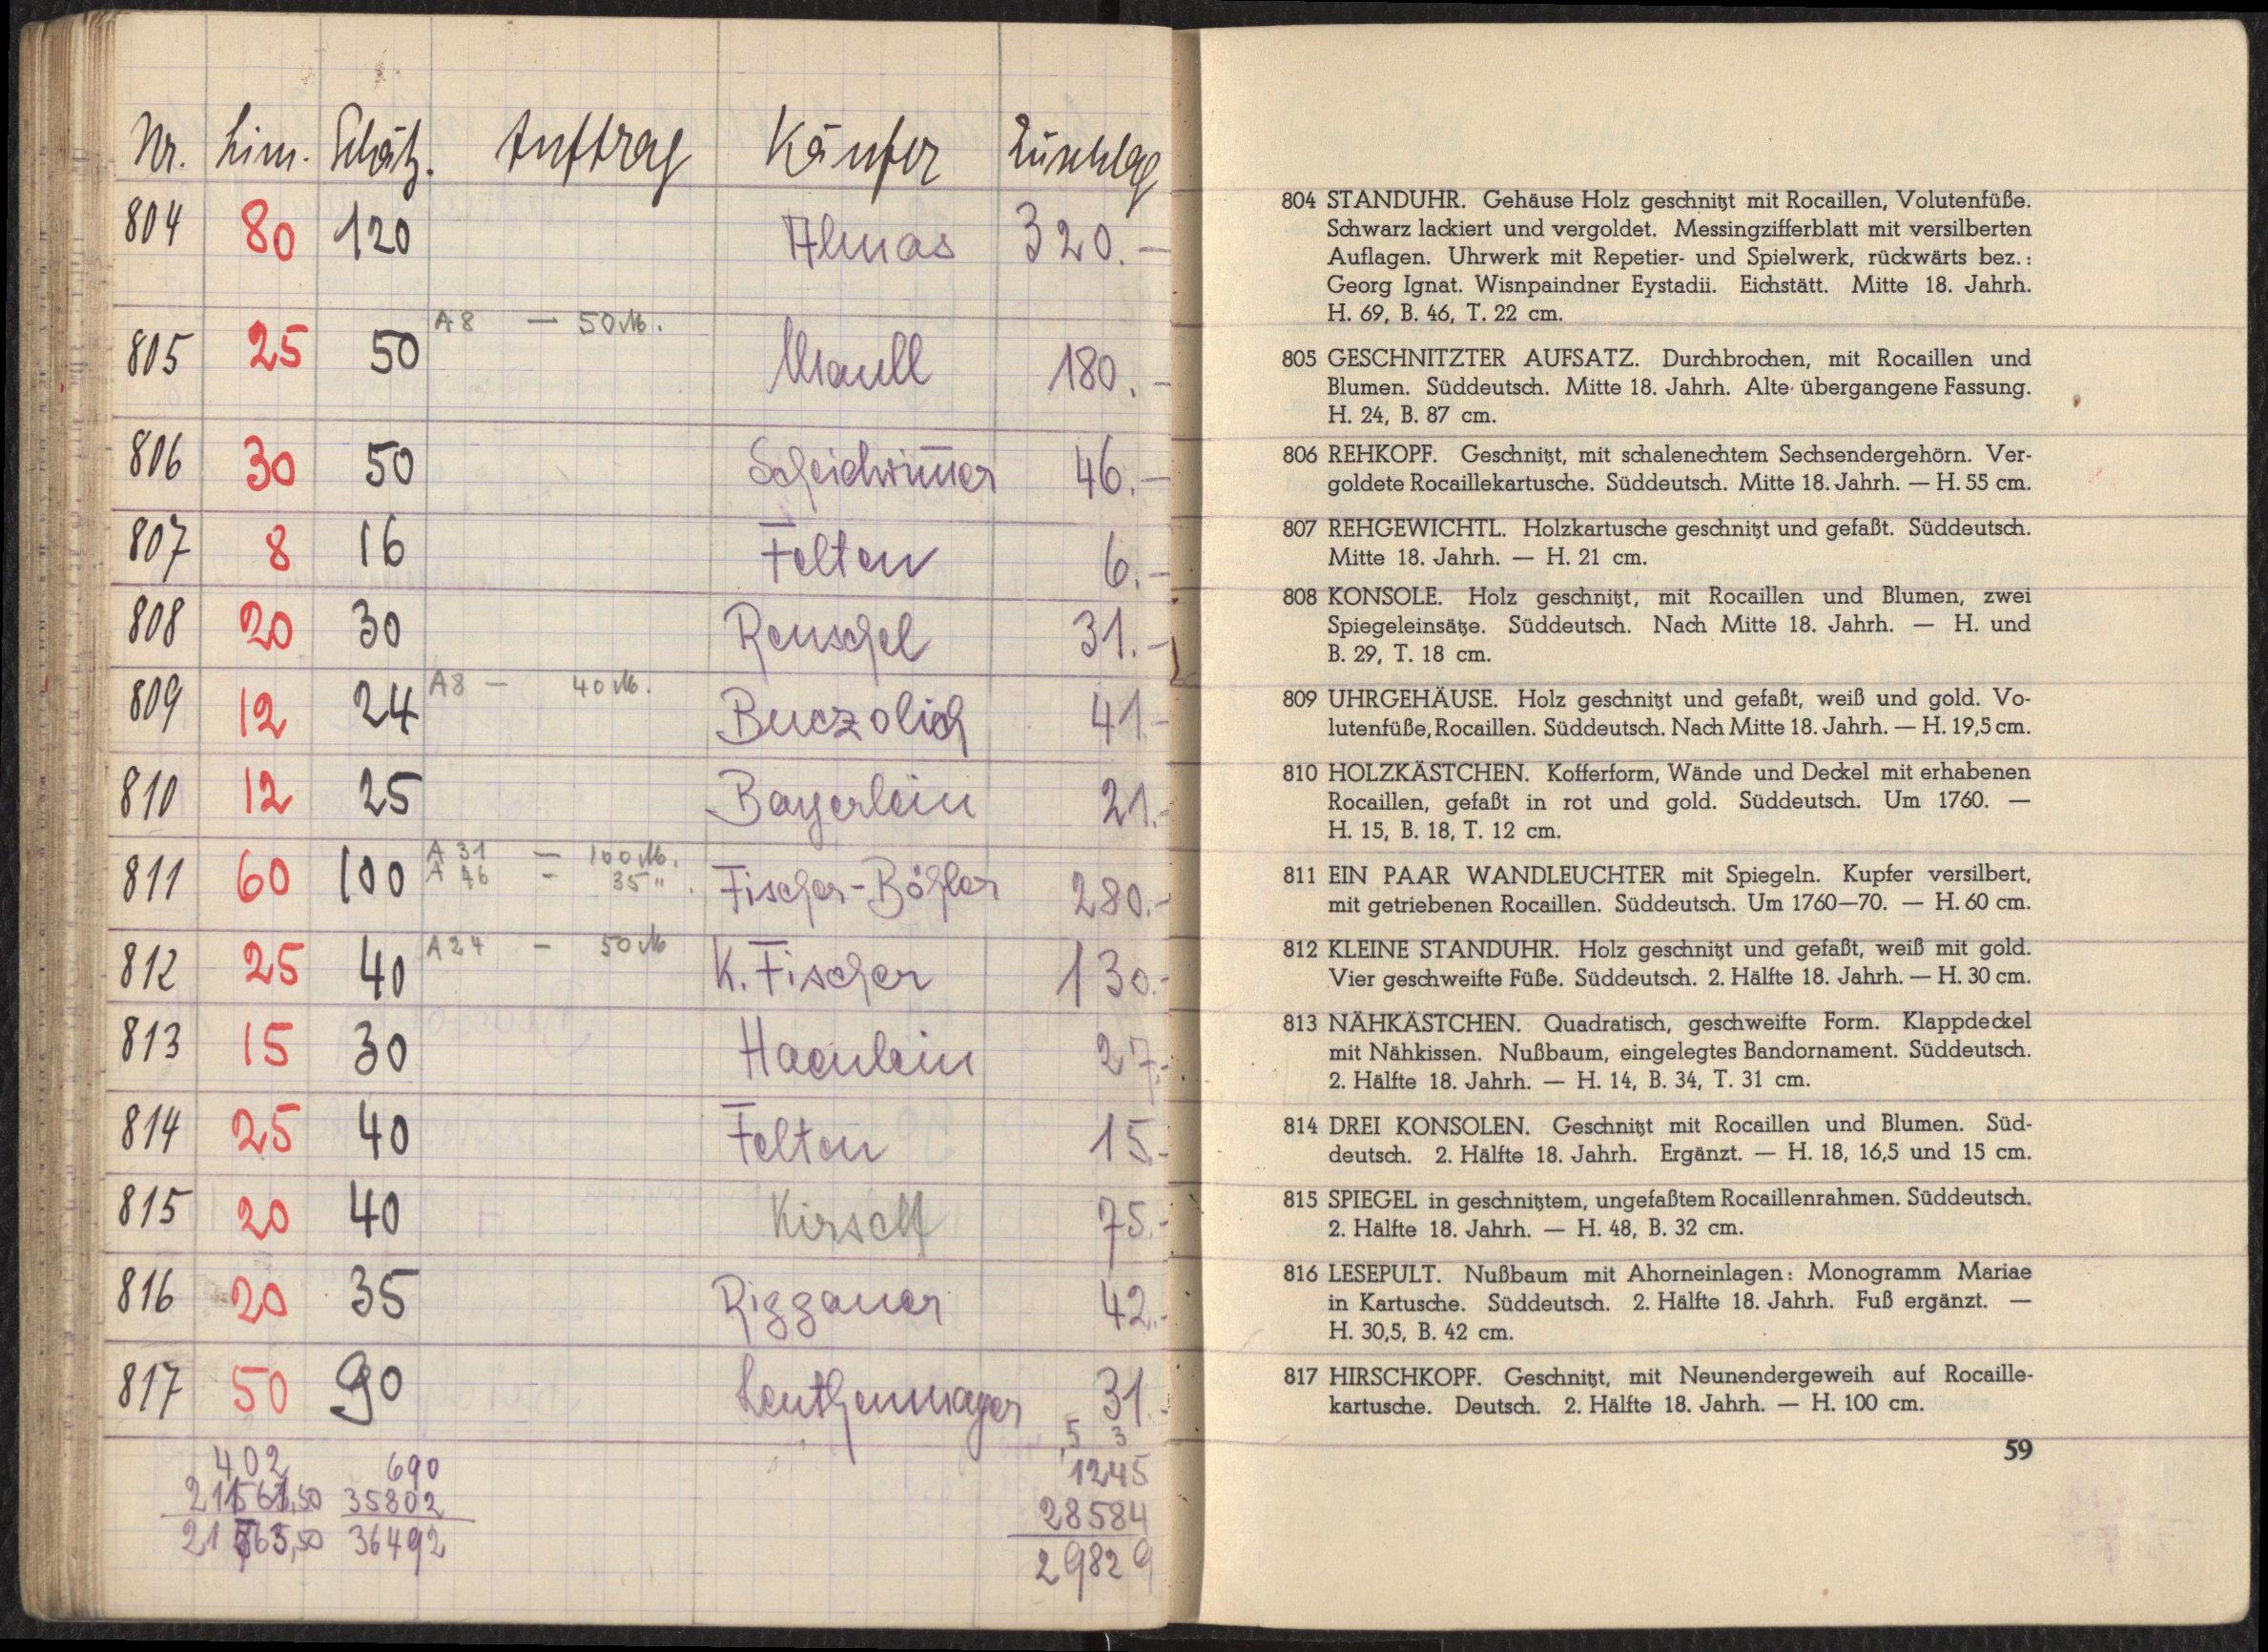 Nr. Lim. Schätz. Auftrag Käufer Zuschlag
804 80 120 Almas 320.—
805 25 50 A8 — 50 M. Maull 180.—
806 30 50 Scheidwim̄er 46.—
807 8 16 Felten 6.—
808 20 30 Reuschel 31.—
809 12 24 A8 — 40 M. Buczolich 41.—
810 12 25 Bayerlein 21.—
811 60 100 A 31 — 100 M. Fischer-Böhler 280.—
A 46 - 35 " .
812 25 40 A24 — 50 M K. Fischer 130.-
813 15 30 Haenlein 27.-
814 25 40 Felten 15.-
815 20 40 75.-
816 20 35 Riggauer 42.-
817 50 90 Leuthenmayer 31.-
5 3
402 690 1245
35802 28584
36492 29829
804 STANDUHR. Gehäuse Holz geschnitzt mit Rocaillen, Volutenfüße.
Schwarz lackiert und vergoldet. Messingzifferblatt mit versilberten
Auflagen. Uhrwerk mit Repetier- und Spielwerk, rückwärts bez.:
Georg Ignat. Wisnpaindner Eystadii. Eichstätt. Mitte 18. Jahrh.
H. 69, B. 46, T. 22 cm.
805 GESCHNITZTER AUFSATZ. Durchbrochen, mit Rocaillen und
Blumen. Süddeutsch. Mitte 18. Jahrh. Alte übergangene Fassung.
H. 24, B. 87 cm.
806 REHKOPF. Geschnitzt, mit schalenechtem Sechsendergehörn. Ver-
goldete Rocaillekartusche. Süddeutsch. Mitte 18. Jahrh. — H. 55 cm.
807 REHGEWICHTL. Holzkartusche geschnitzt und gefaßt. Süddeutsch.
Mitte 18. Jahrh. — H. 21 cm.
808 KONSOLE. Holz geschnitzt, mit Rocaillen und Blumen, zwei
Spiegeleinsätze. Süddeutsch. Nach Mitte 18. Jahrh. — H. und
B. 29, T. 18 cm.
809 UHRGEHÄUSE. Holz geschnitzt und gefaßt, weiß und gold. Vo-
lutenfüße, Rocaillen. Süddeutsch. Nach Mitte 18. Jahrh. — H. 19,5 cm.
810 HOLZKÄSTCHEN. Kofferform, Wände und Deckel mit erhabenen
Rocaillen, gefaßt in rot und gold. Süddeutsch. Um 1760. —
H. 15, B. 18, T. 12 cm.
811 EIN PAAR WANDLEUCHTER mit Spiegeln. Kupfer versilbert,
mit getriebenen Rocaillen. Süddeutsch. Um 1760—70. — H. 60 cm.
812 KLEINE STANDUHR. Holz geschnitzt und gefaßt, weiß mit gold.
Vier geschweifte Füße. Süddeutsch. 2. Hälfte 18. Jahrh. — H. 30 cm.
813 NÄHKÄSTCHEN. Quadratisch, geschweifte Form. Klappdeckel
mit Nähkissen. Nußbaum, eingelegtes Bandornament. Süddeutsch.
2. Hälfte 18. Jahrh. — H. 14, B. 34, T. 31 cm.
814 DREI KONSOLEN. Geschnitzt mit Rocaillen und Blumen. Süd-
deutsch. 2. Hälfte 18. Jahrh. Ergänzt. — H. 18, 16,5 und 15 cm.
815 SPIEGEL in geschnitztem, ungefaßtem Rocaillenrahmen. Süddeutsch.
2. Hälfte 18. Jahrh. — H. 48, B. 32 cm.
816 LESEPULT. Nußbaum mit Ahorneinlagen: Monogramm Mariae
in Kartusche. Süddeutsch. 2. Hälfte 18. Jahrh. Fuß ergänzt. —
H. 30,5, B. 42 cm.
817 HIRSCHKOPF. Geschnitzt, mit Neunendergeweih auf Rocaille-
kartusche. Deutsch. 2. Hälfte 18. Jahrh. — H. 100 cm.
59